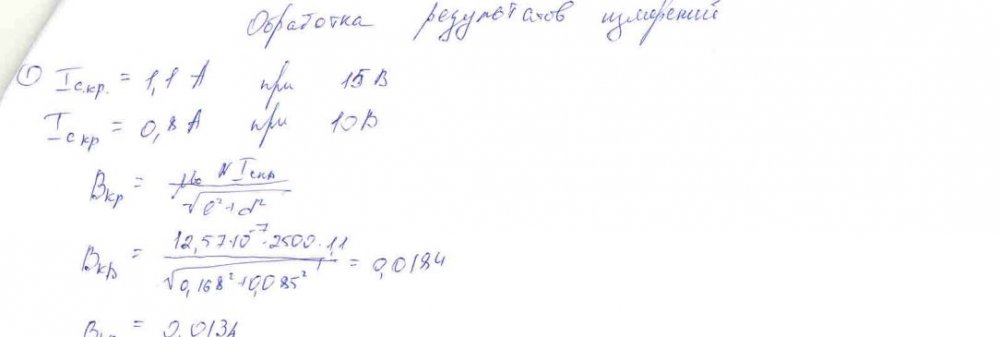 Обработка результатов измерений
① Iс.кр. = 1,1 А при 15 В
Iс кр = 0,8 А при 10 В
Bкр = μ₀ N Iскр / √(l² + d²)
Bкр = 12,57·10⁻⁷·2500·1,1 / √(0,168² + 0,085²) = 0,0184
= 0,013